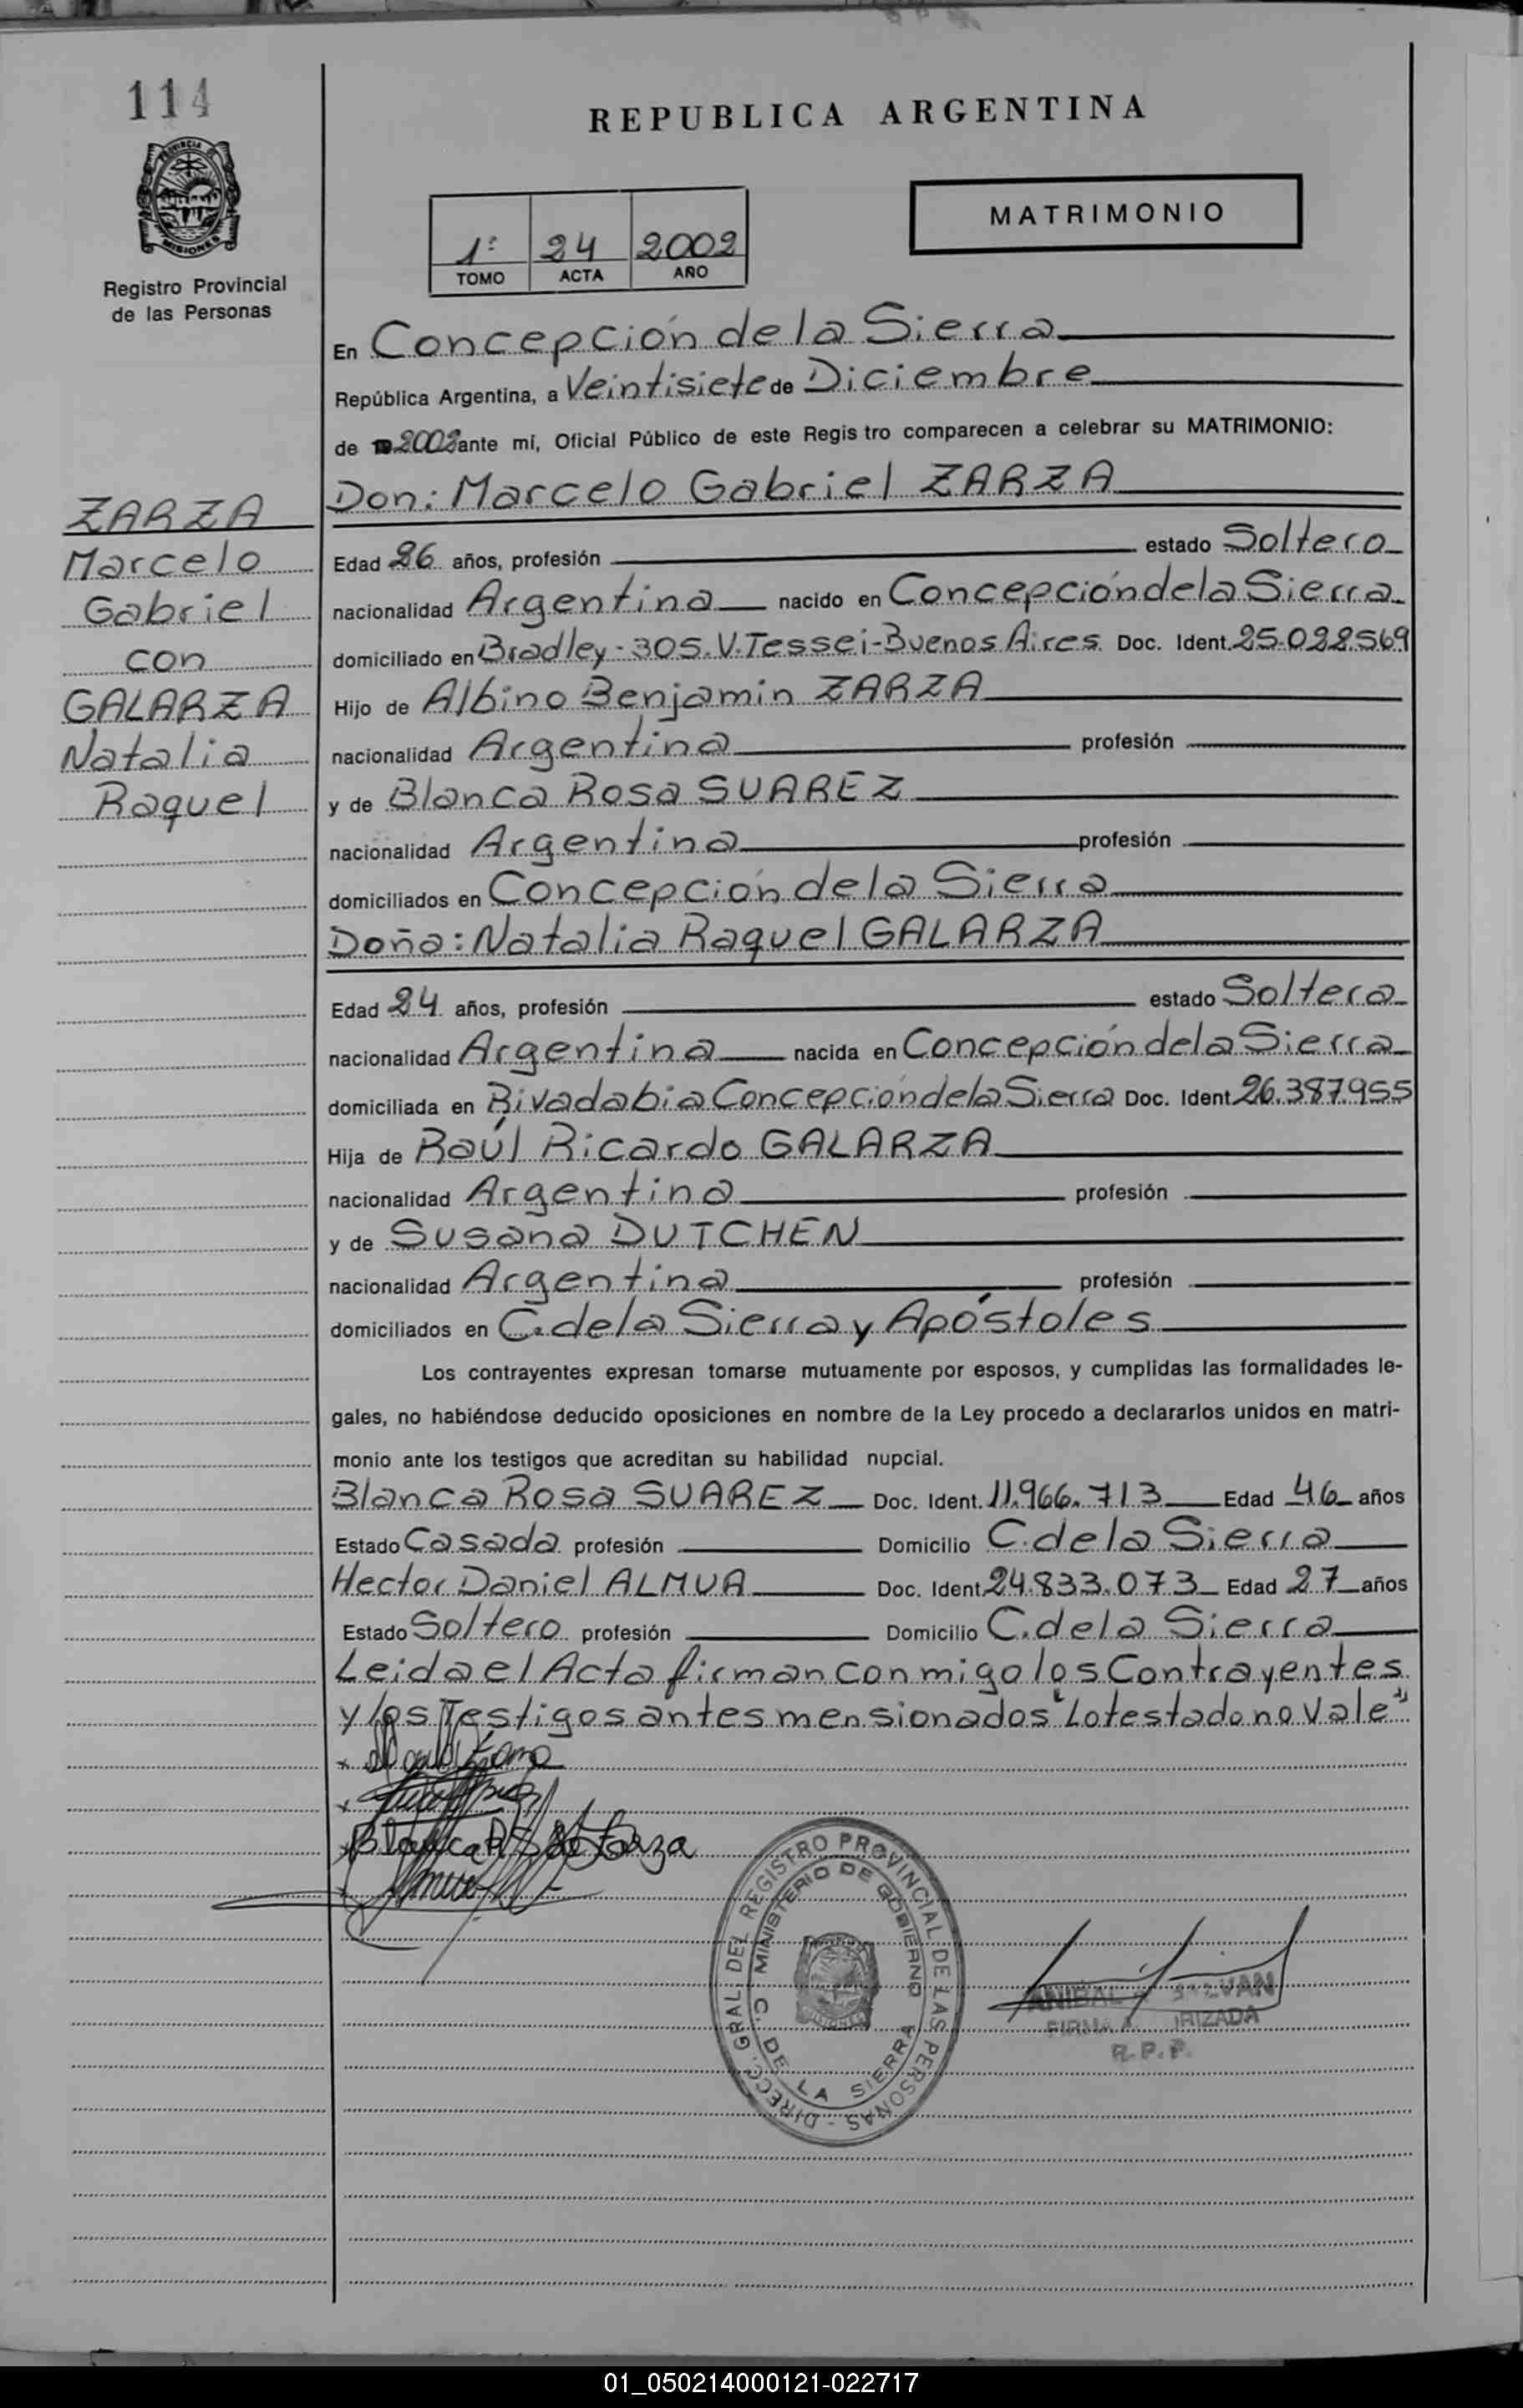 114
PROVINCIA
MISIONES
Registro Provincial
de las Personas
REPUBLICA ARGENTINA
MATRIMONIO
1º 24 2002
TOMO ACTA AÑO
En Concepción de la Sierra
República Argentina, a Veintisiete de Diciembre
de 2002 ante mí, Oficial Público de este Regis tro comparecen a celebrar su MATRIMONIO:
ZARZA
Marcelo
Gabriel
con
GALARZA
Natalia
Raquel
Don: Marcelo Gabriel ZARZA
Edad 26 años, profesión estado Soltero
nacionalidad Argentina nacido en Concepción de la Sierra
domiciliado en Bradley - 305. V. Tessei - Buenos Aires Doc. Ident. 25.022.569
Hijo de Albino Benjamin ZARZA
nacionalidad Argentina profesión
y de Blanca Rosa SUAREZ
nacionalidad Argentina profesión
domiciliados en Concepción de la Sierra
Doña: Natalia Raquel GALARZA
Edad 24 años, profesión estado Soltera
nacionalidad Argentina nacida en Concepción de la Sierra
domiciliada en Rivadabia Concepción de la Sierra Doc. Ident. 26.387.955
Hija de Raúl Ricardo GALARZA
nacionalidad Argentina profesión
y de Susana DUTCHEN
nacionalidad Argentina profesión
domiciliados en C. de la Sierra y Apóstoles
Los contrayentes expresan tomarse mutuamente por esposos, y cumplidas las formalidades le-
gales, no habiéndose deducido oposiciones en nombre de la Ley procedo a declararlos unidos en matri-
monio ante los testigos que acreditan su habilidad nupcial.
Blanca Rosa SUAREZ Doc. Ident. 11.966.713 Edad 46 años
Estado Casada profesión Domicilio C. de la Sierra
Hector Daniel ALMUA Doc. Ident. 24.833.073 Edad 27 años
Estado Soltero profesión Domicilio C. de la Sierra
Leida el Acta firman conmigo los Contrayentes
y los Testigos antes mensionados "Lo testado no vale"
Blanca R S de Zarza
DIRECC. GRAL. DEL REGISTRO PROVINCIAL DE LAS PERSONAS -
MINISTERIO DE GOBIERNO
C. DE LA SIERRA
MISIONES
ANIBAL
FIRMA
R.P.P.
01_050214000121-022717